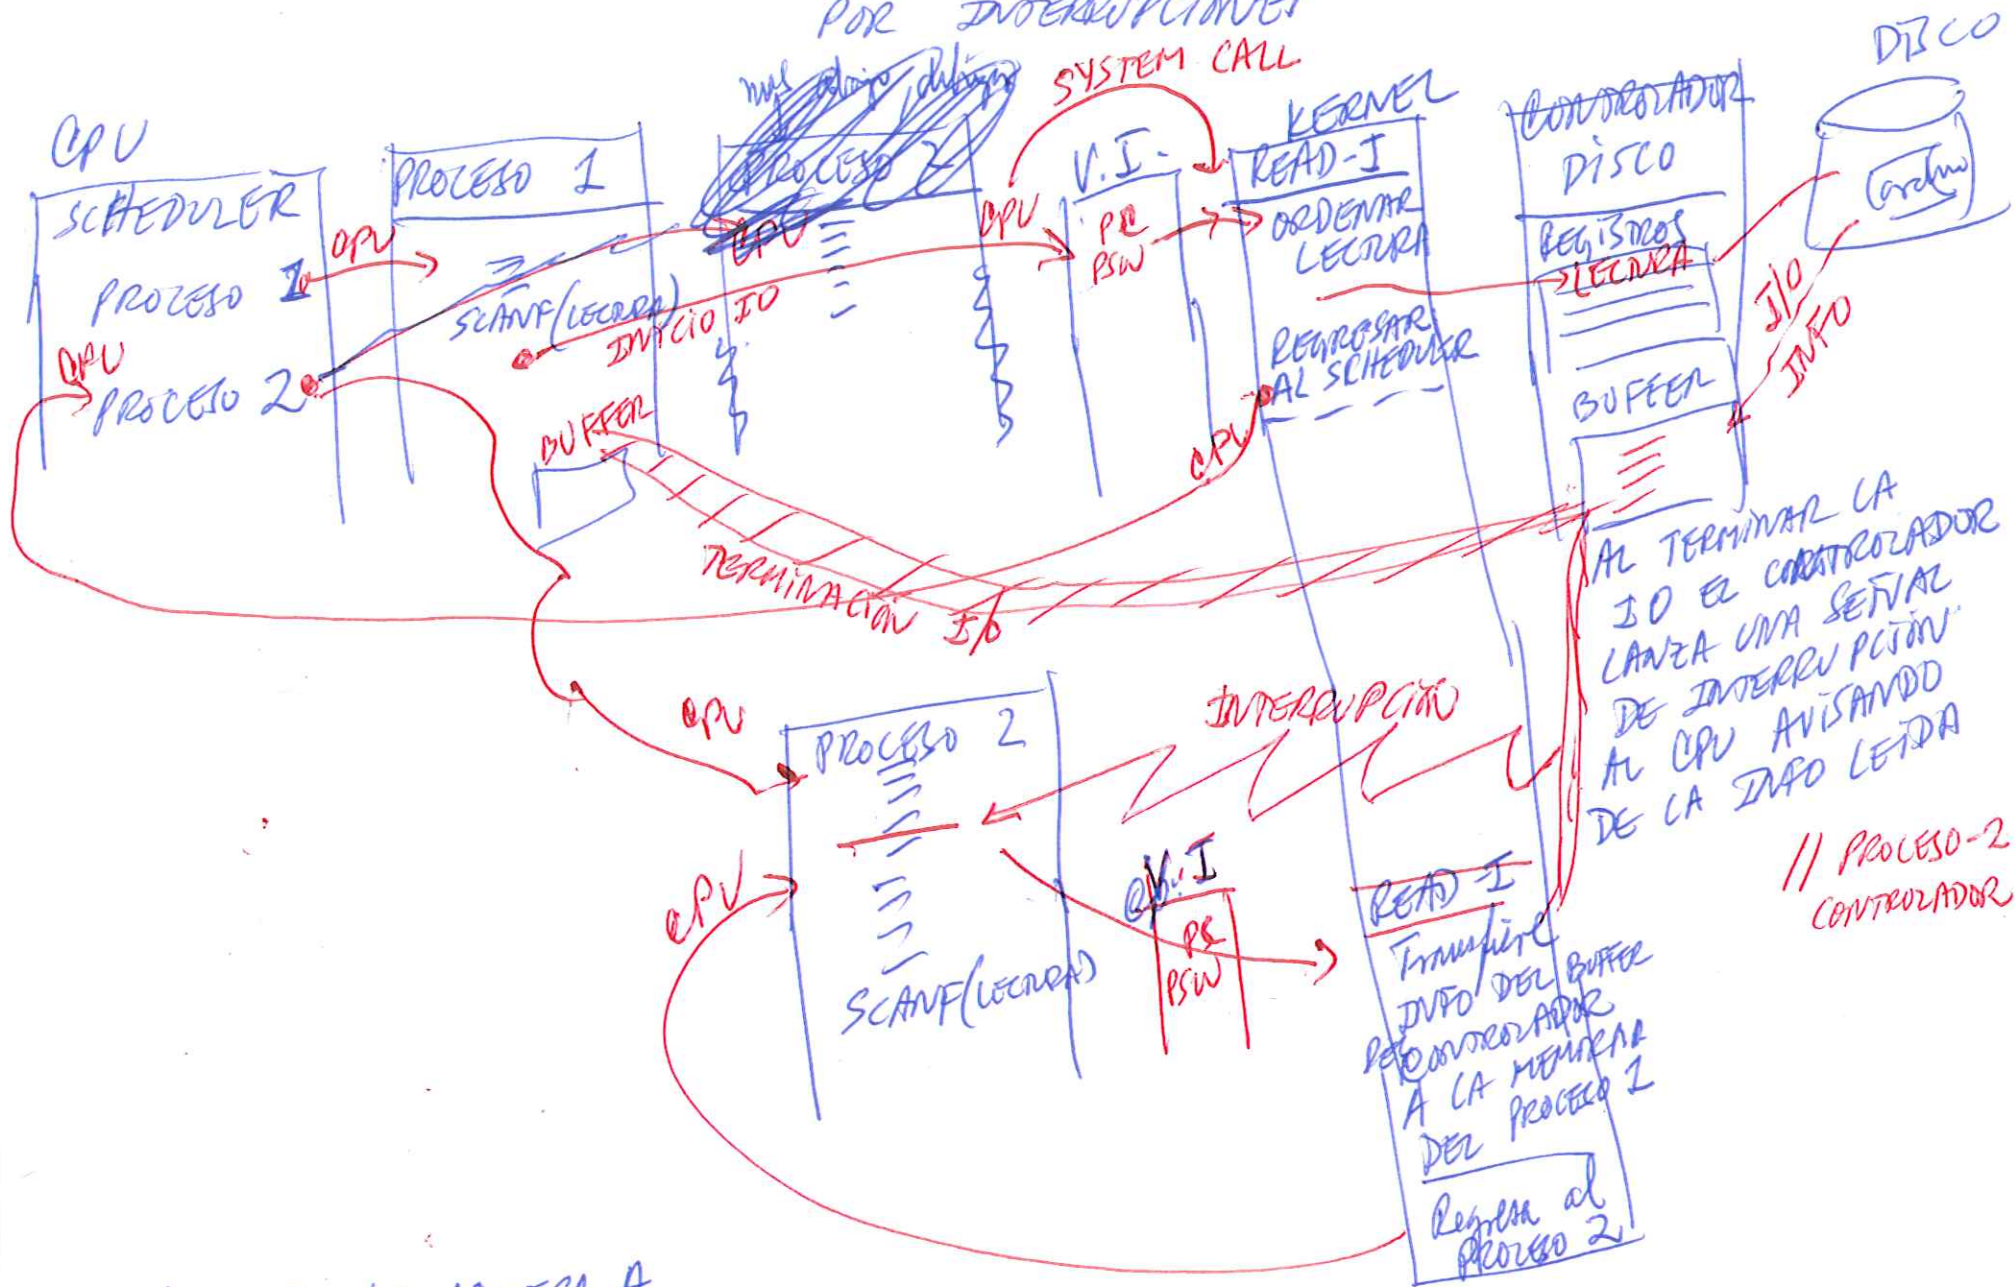 POR INTERRUPCIONES
SYSTEM CALL
DISCO
CPU
SCHEDULER
PROCESO 1
PROCESO 2
CPU
CPU
PROCESO 1
SCANF(LECTURA)
INICIO IO
BUFFER
PROCESO 2
CPU
CPU
V.I.
PC
PSW
KERNEL
READ-I
ORDENAR
LECTURA
REGRESAR
AL SCHEDULER
CPU
CONTROLADOR
DISCO
REGISTROS
LECTURA
BUFFER
I/O
INFO
TERMINACIÓN I/O
AL TERMINAR LA
IO EL CONTROLADOR
LANZA UNA SEÑAL
DE INTERRUPCIÓN
AL CPU AVISANDO
DE LA INFO LEIDA
// PROCESO-2
CONTROLADOR
CPU
PROCESO 2
SCANF(LECTURA)
CPU
INTERRUPCIÓN
V.I
PC
PSW
READ-I
Transfiere
INFO DEL BUFFER
DEL CONTROLADOR
A LA MEMORIA
DEL PROCESO 1
Regresa al
PROCESO 2
A